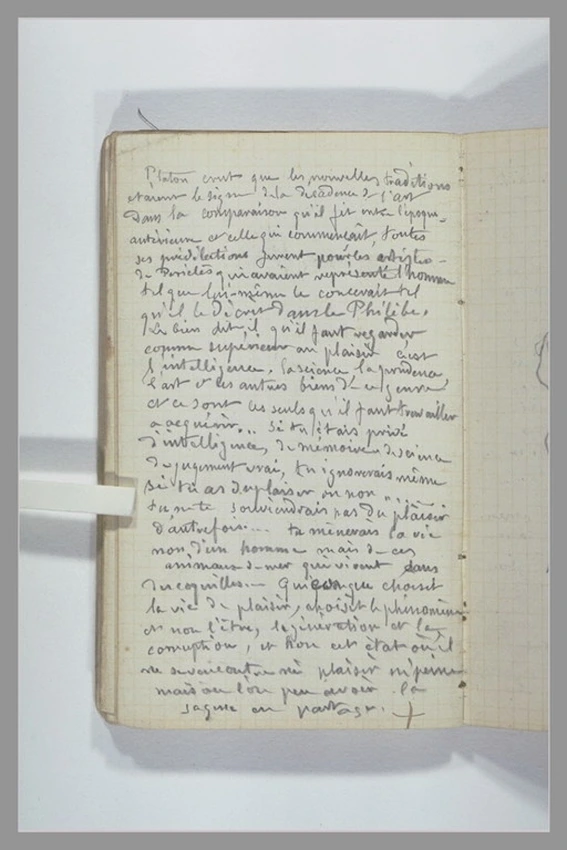 Platon crut que les nouvelles traditions
étaient le signe de la décadence de l'art
Dans la comparaison qu'il fit entre l'époque
antérieure et celle qui commençait, toutes
ses prédilections furent pour les artistes
de Periclès qui avaient représenté l'homme
tel que lui-même le concevait tel
qu'il le Décrit Dans le Philèbe.
Le bien dit-il qu'il faut regarder
comme supérieur au plaisir c'est
l'intelligence, la science la prudence
l'art et les autres biens de ce genre
et ce sont les seuls qu'il faut travailler
a acquérir... Si tu étais privé
d'intelligence, de mémoire de science
de jugement vrai, tu ignorerais même
si tu as du plaisir ou non .....
tu ne te souviendrais pas du plaisir
d'autrefois... tu mènerais la vie
non d'un homme mais de ces
animaux de mer qui vivent dans
des coquilles. — Quiconque choisit
la vie de plaisir, choisit le phénomène
et non l'être, la génération et la
corruption, et non cet état où il
ne se rencontre ni plaisir ni peine
mais où l'on peu avoir la
sagesse en partage.